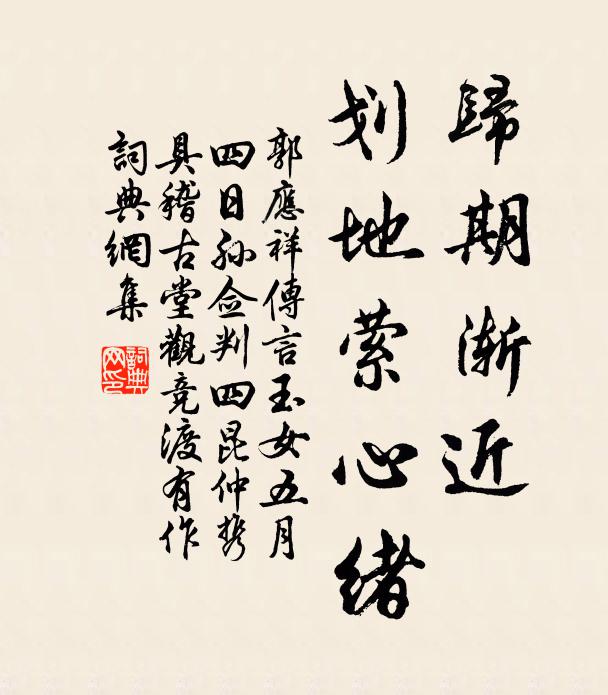 歸期漸近
划地萦心緒
郭應祥傳言玉女五月
四日孙佥判四昆仲携
具稽古堂觀竞渡有作
詞典網集
詞典網印